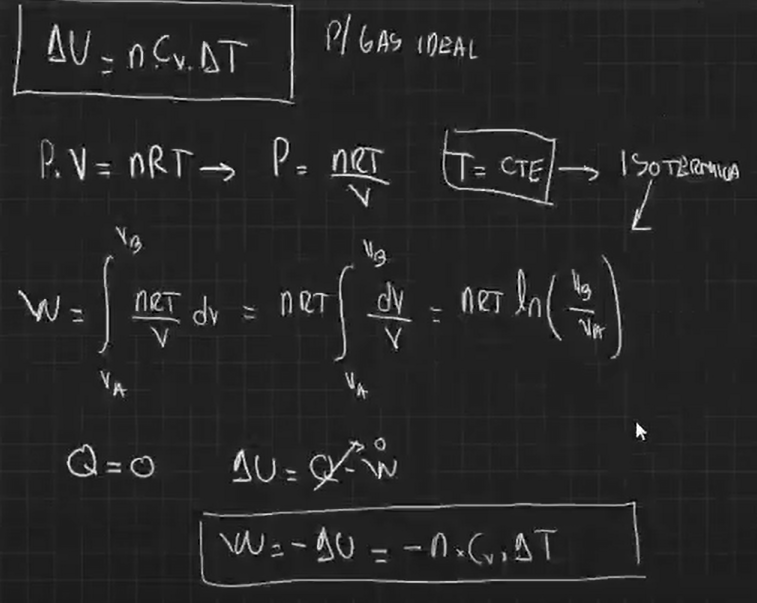 ΔU = n.Cv.ΔT P/ GAS IDEAL
P.V = nRT → P = nRT/V T = CTE → ISOTERMICA
W = ∫_{VA}^{VB} nRT/V dv = nRT ∫_{VA}^{VB} dv/V = nRT ln(VB/VA)
Q = 0 ΔU = Q↗0 - W
W = -ΔU = -n.Cv.ΔT